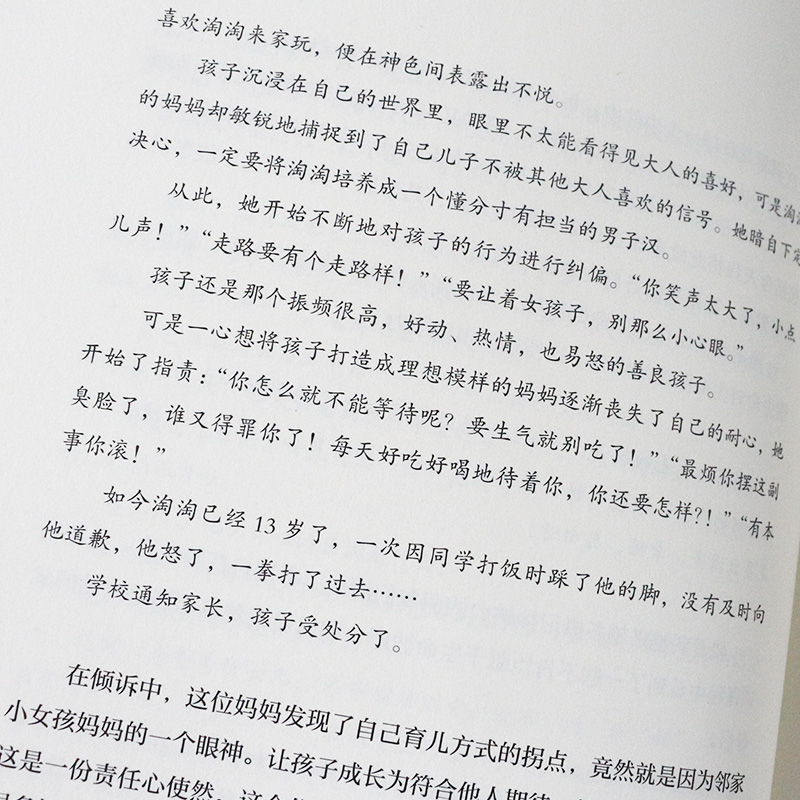 喜欢淘淘来家玩，便在神色间表露出不悦。
孩子沉浸在自己的世界里，眼里不太能看得见大人的喜好，可是淘淘
的妈妈却敏锐地捕捉到了自己儿子不被其他大人喜欢的信号。她暗自下定
决心，一定要将淘淘培养成一个懂分寸有担当的男子汉。
从此，她开始不断地对孩子的行为进行纠偏。“你笑声太大了，小点
儿声！”“走路要有个走路样！”“要让着女孩子，别那么小心眼。”
孩子还是那个振频很高，好动、热情，也易怒的善良孩子。
可是一心想将孩子打造成理想模样的妈妈逐渐丧失了自己的耐心，她
开始了指责：“你怎么就不能等待呢？要生气就别吃了！”“最烦你摆这副
臭脸了，谁又得罪你了！每天好吃好喝地待着你，你还要怎样?！”“有本
事你滚！”
如今淘淘已经 13 岁了，一次因同学打饭时踩了他的脚，没有及时向
他道歉，他怒了，一拳打了过去……
学校通知家长，孩子受处分了。
在倾诉中，这位妈妈发现了自己育儿方式的拐点，竟然就是因为邻家
小女孩妈妈的一个眼神。让孩子成长为符合他人期待
这是一份责任心使然。